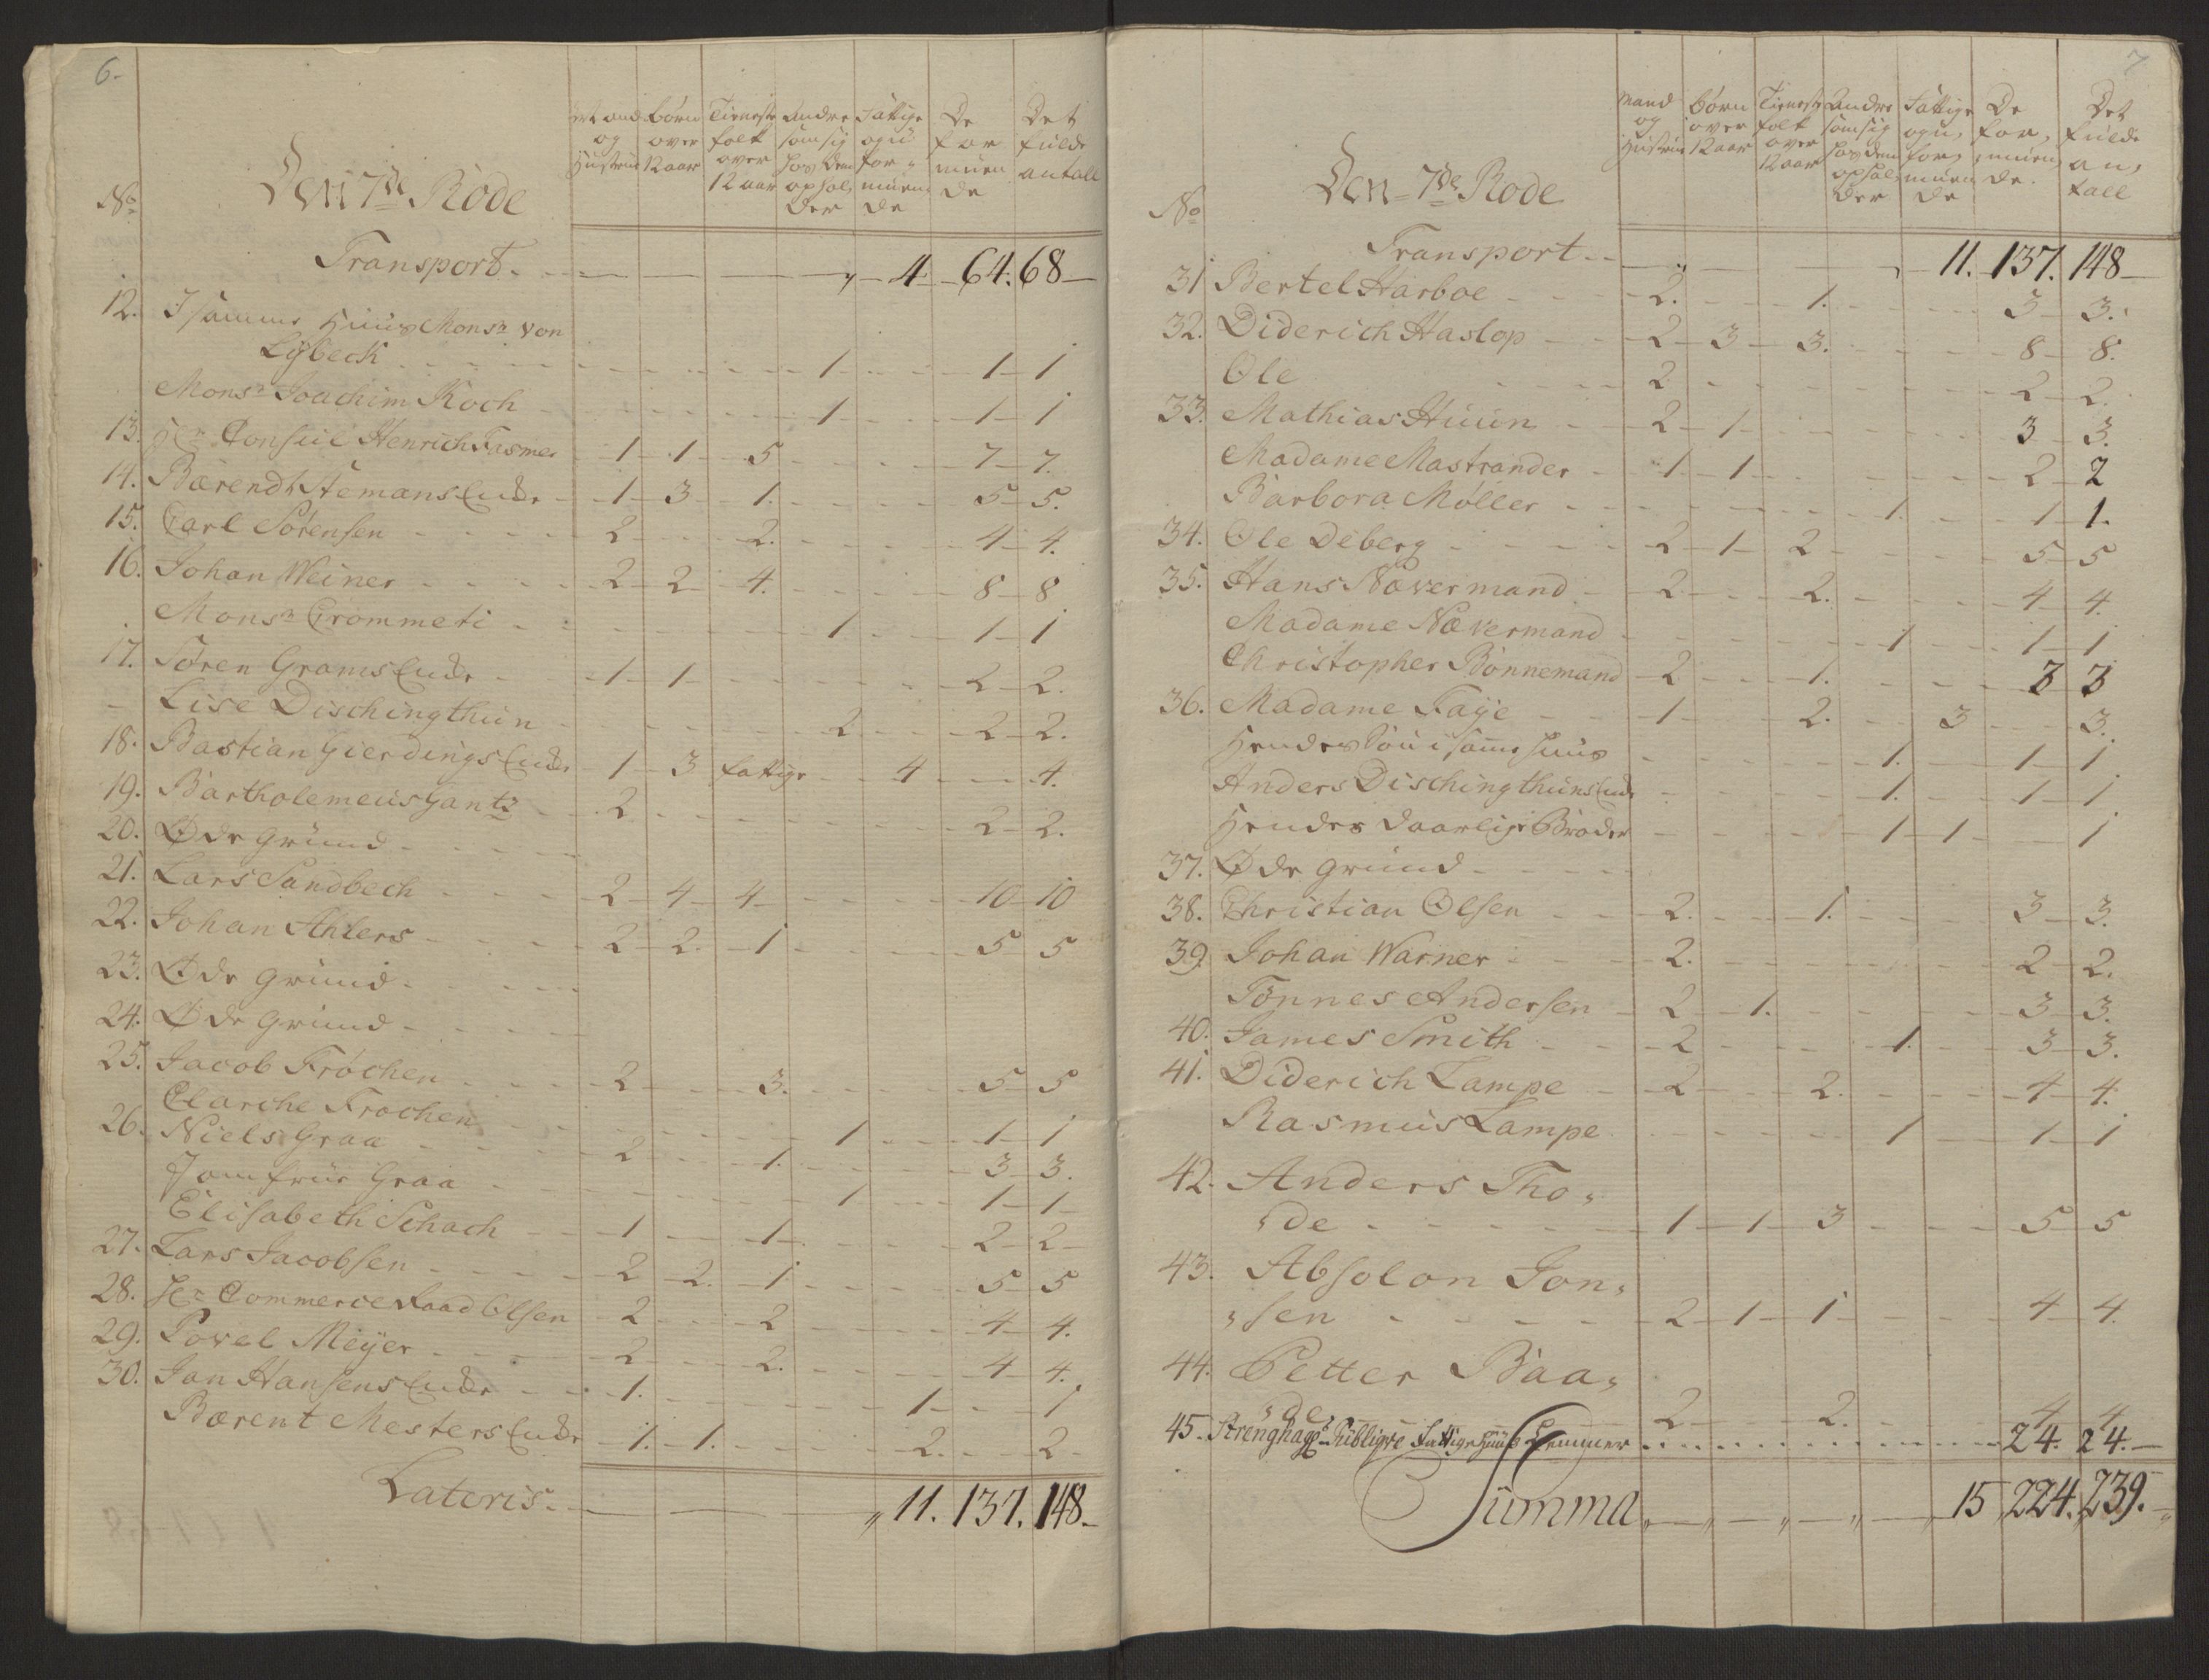 6.
No
Den 7de Rode
Mand og Hustrue
Børn over 12 aar
Tieneste folk over 12 aar
Andre som sig hos dem ophol, der
Fattige og u for, muen de
De for muen de
Det fulde antall
Transport. 4. 64. 68
12. I samme Huus Monsr von
Lybeck 1 1 1
Monsr Joachim Koch 1 1 1
13. Hr Consul Henrich Fasmer 1 1 5 7 7.
14. Bærendt Stemans Encke 1 3 1. 5 5.
15. Carl Sørensen 2 2. 4 4.
16. Johan Weiner 2 2 4. 8 8
Monsr Crommeti 1 1 1
17. Søren Grams Encke 1 1 2 2.
Lise Dischingthun 2 2 2.
18. Bastian Gierdings Encke 1 3 fattige 4 4.
19. Bartholemeus Gantz 2 2 2.
20. Øde Grund
21. Lars Sandbech 2 4 4 10 10
22. Johan Ahlers 2 2. 1 5 5
23. Øde Grund
24. Øde Grund
25. Jacob Frøchen 2 3. 5 5
Clarche Frochen 1 1 1
26. Niels Graa 2 1. 3 3.
Jomfrue Graa 1 1 1
Elisabeth Schach 1 1 2 2
27. Lars Jacobsen 2 2. 1 5 5
28. Hr Commerce Raad Olsen 2 2 4 4.
29. Povel Meyer 2 2. 4 4.
30. Jan Hansens Encke 1. 1 1
Bærent Mesters Encke 1. 1. 2. 2
Lateris. 11. 137. 148.
7
No
Den 7de Rode
Mand og Hustrue
Børn over 12 aar
Tieneste folk over 12 aar
Andre som sig hos dem ophol, der
Fattige og u, for, muen de
De for, muen, de.
Det fulde an, tall
Transport 11. 137. 148
31 Bertel Harboe 2. 1. 3 3.
32. Diderich Haslop 2 3 3. 8 8.
Ole 2 2 2.
33. Mathias Huun 2 1 3 3.
Madame Mastrander 1 1 2 2
Barbora Møller 1. 1 1.
34. Ole Deberg 2 1 2 5 5
35. Hans Nævermand 2 2. 4 4.
Madame Nævermand 1 1 1
Christopher Bønnemand 2 1. 3 3
36. Madame Faye 1 2. 3 3.
Hendes Søn i samme Huus 1. 1 1
Anders Dischingthuns Encke 1. 1 1
Hendes daarlige Broder 1 1 1
37. Øde Grund
38. Christian Olsen 2. 1. 3 3.
39. Johan Warner 2. 2 2.
Tønnes Andersen 2 1. 3 3.
40. James Smith 2 1. 3 3.
41. Diderich Lampe 2 2. 4 4.
Rasmus Lampe 1 1 1
42. Anders Tho,
,de 1 1 3 5 5
43. Absolon Jon,
,sen 2 1 1 4 4.
44. Petter Baa,
,de 2 2. 4 4
45. Strenghags Publigve Fattige Huus Lemmer 24. 24.
Summa 15 224. 239.